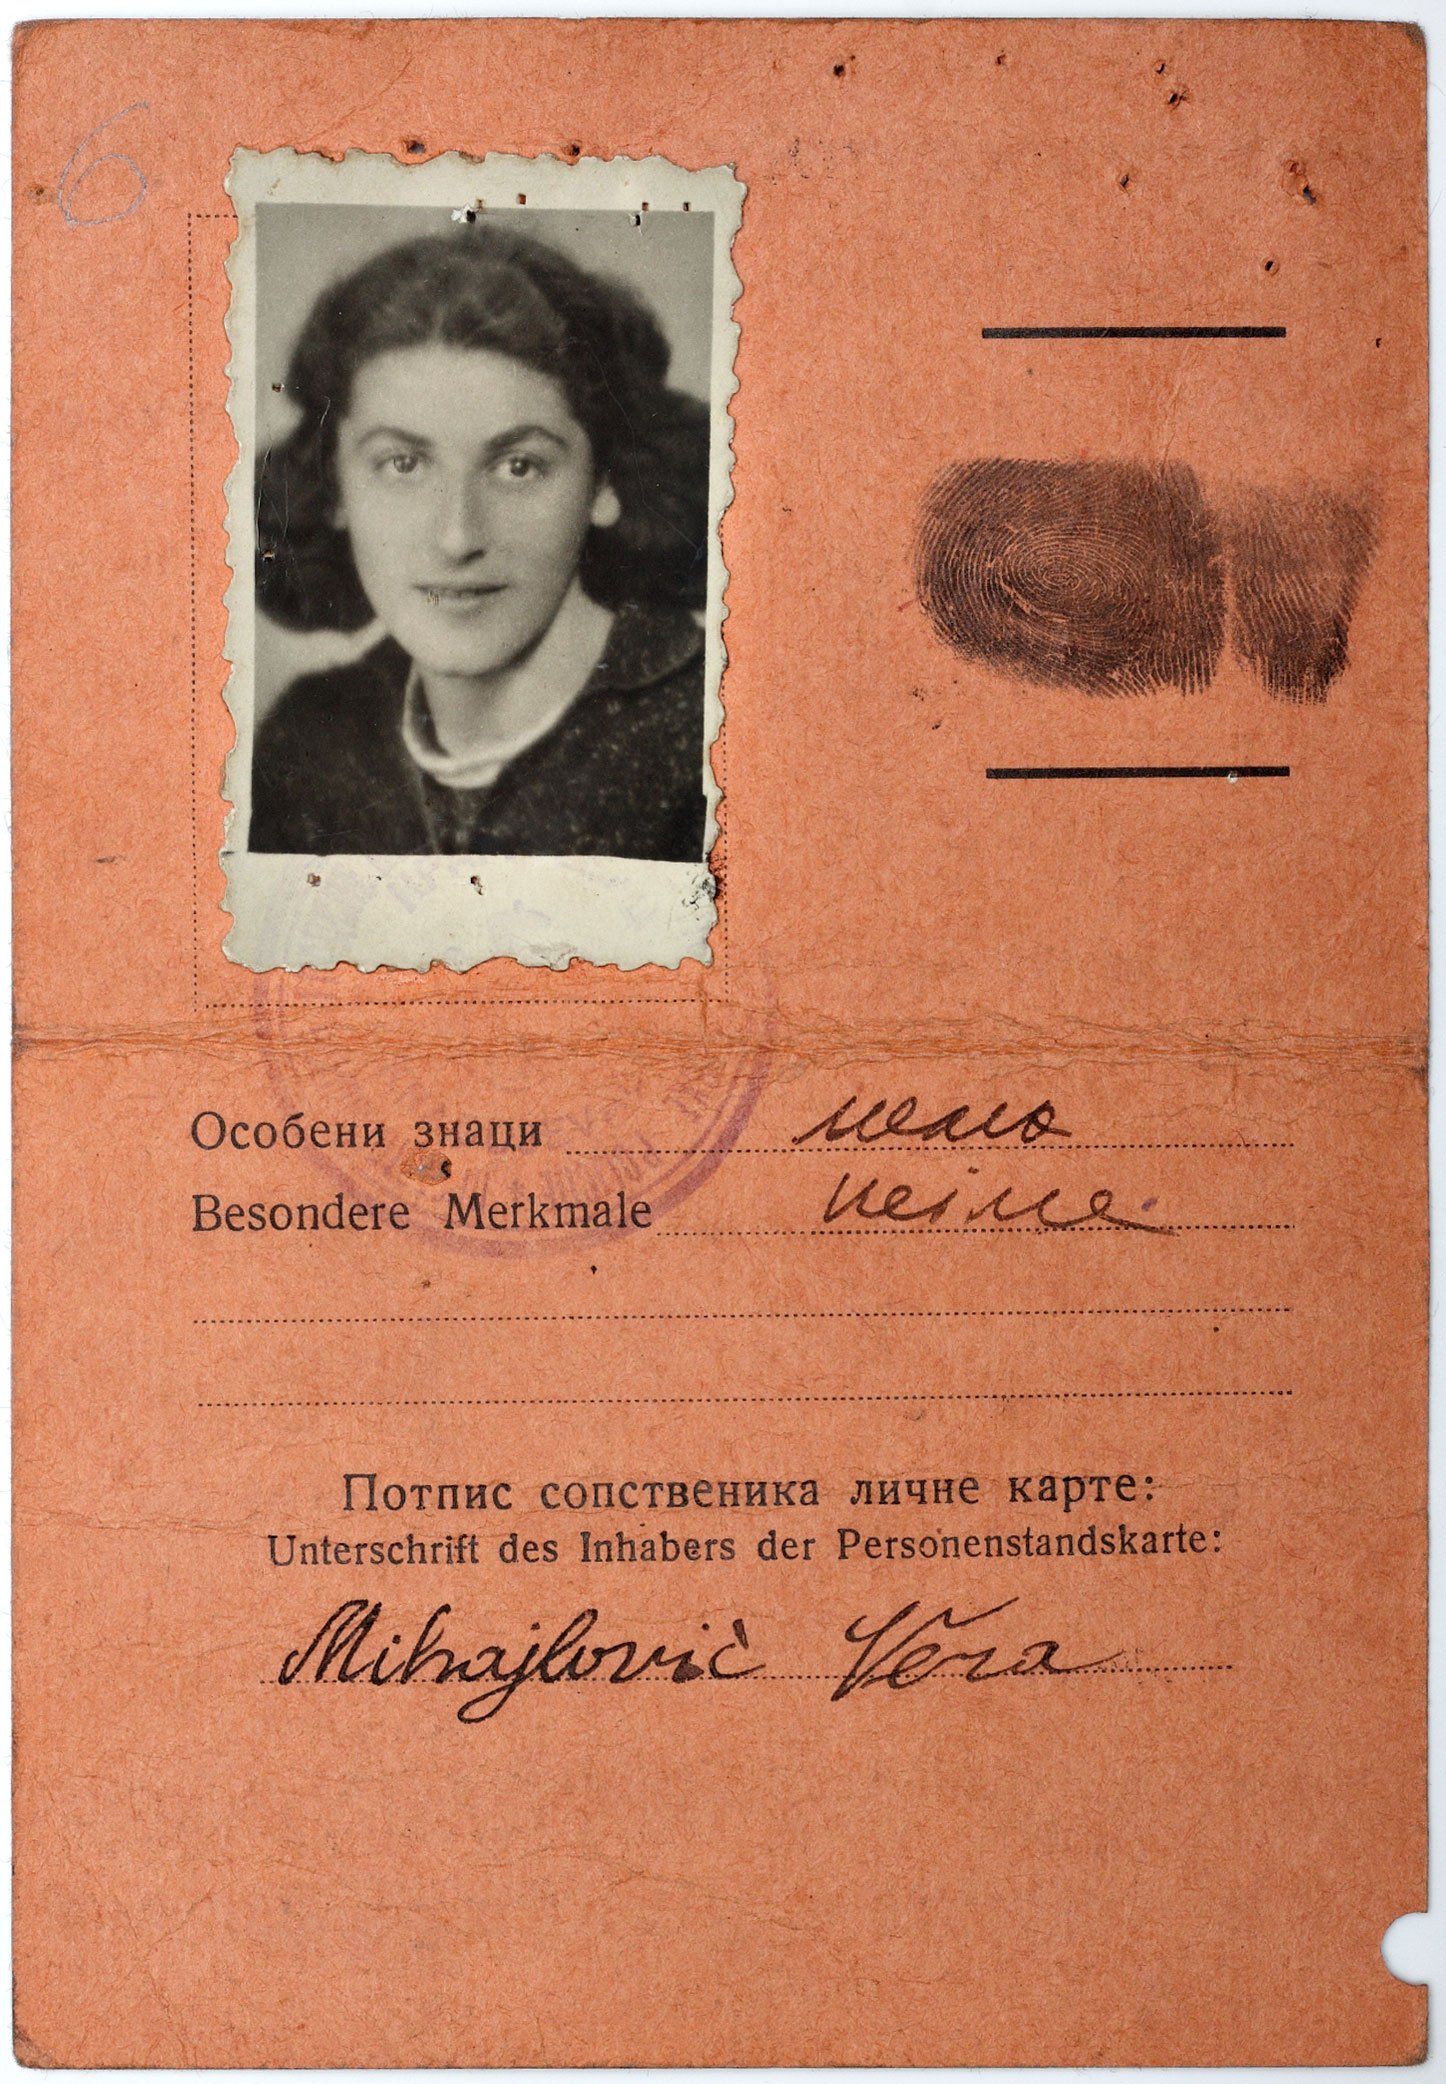 6
Особени знаци
Besondere Merkmale keine
Потпис сопственика личне карте:
Unterschrift des Inhabers der Personenstandskarte:
Mihajlović Vera